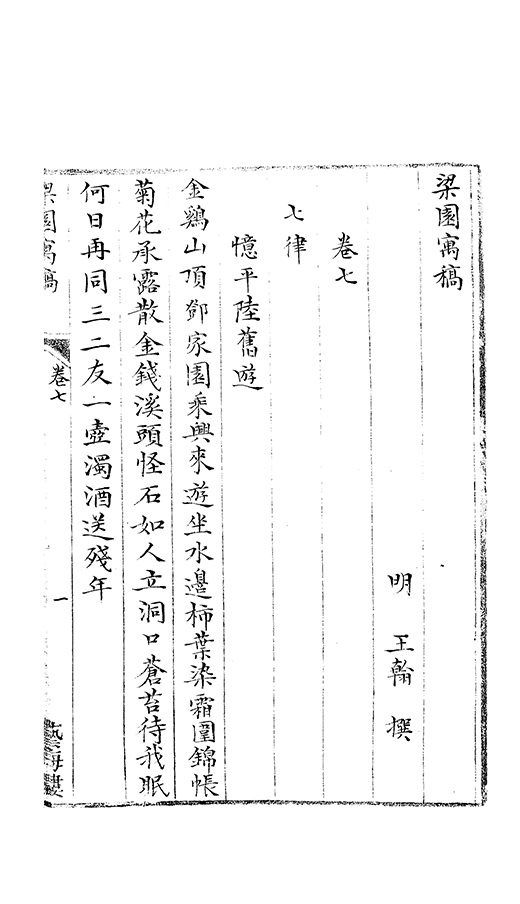 梁園寓稿
明 王翰 撰
卷七
七律
憶平陸舊遊
金鷄山頂鄧家園乘興來遊坐水邊柿葉染霜圍錦帳
菊花承露散金錢溪頭怪石如人立洞口蒼苔待我眠
何日再同三二友一壺濁酒送殘年
梁園寓稿
卷七
一
藝海樓